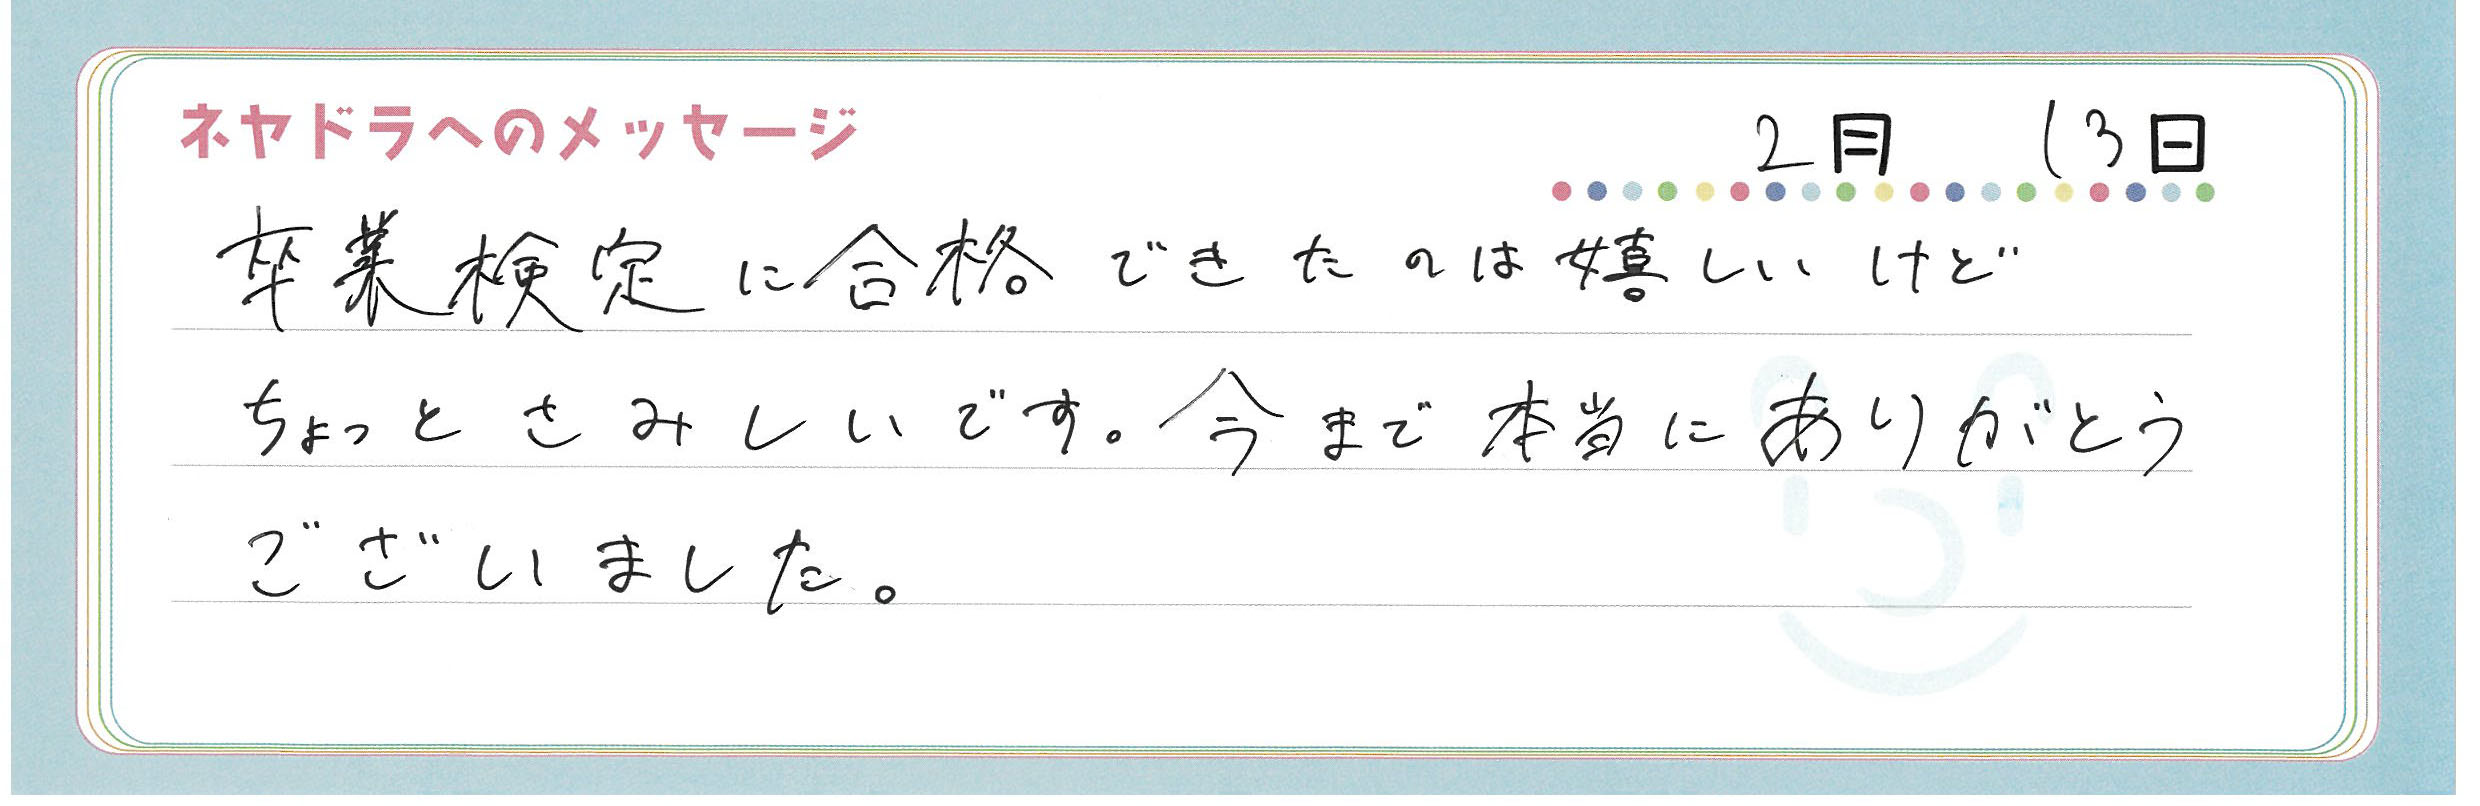 ネヤドラへのメッセージ
2月 13日
卒業検定に合格できたのは嬉しいけど
ちょっとさみしいです。今まで本当にありがとう
ございました。